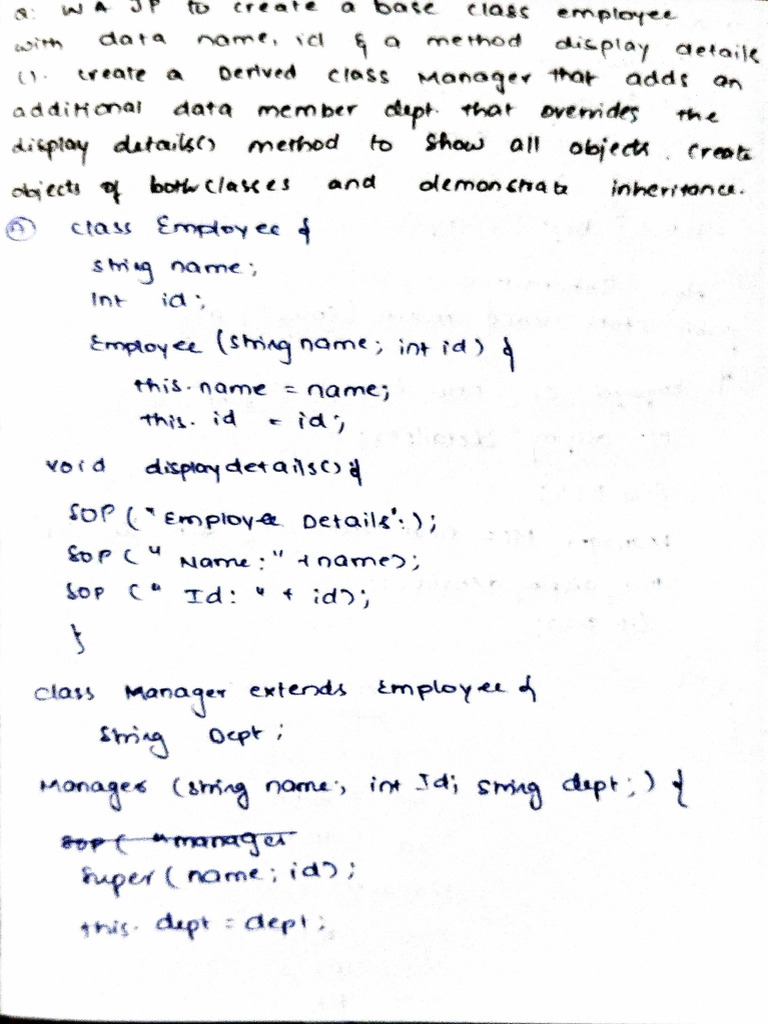 Q: WA JP to create a base class employee
with data name, id & a method display details
(). create a Derived class Manager that adds an
additional data member dept. that overrides the
display details() method to show all objects. create
objects of both classes and demonstrate inheritance.
A class Employee {
string name;
Int id;
Employee (string name; int id) {
this.name = name;
this. id = id;
void displaydetails() {
SOP ("Employee Details":);
SOP (" Name:" +name);
SOP (" Id: " + id);
}
class Manager extends Employee {
String Dept;
Manager (string name;, int Id; string dept;) {
SOP ( "manager
super (name; id);
this. dept = dept;